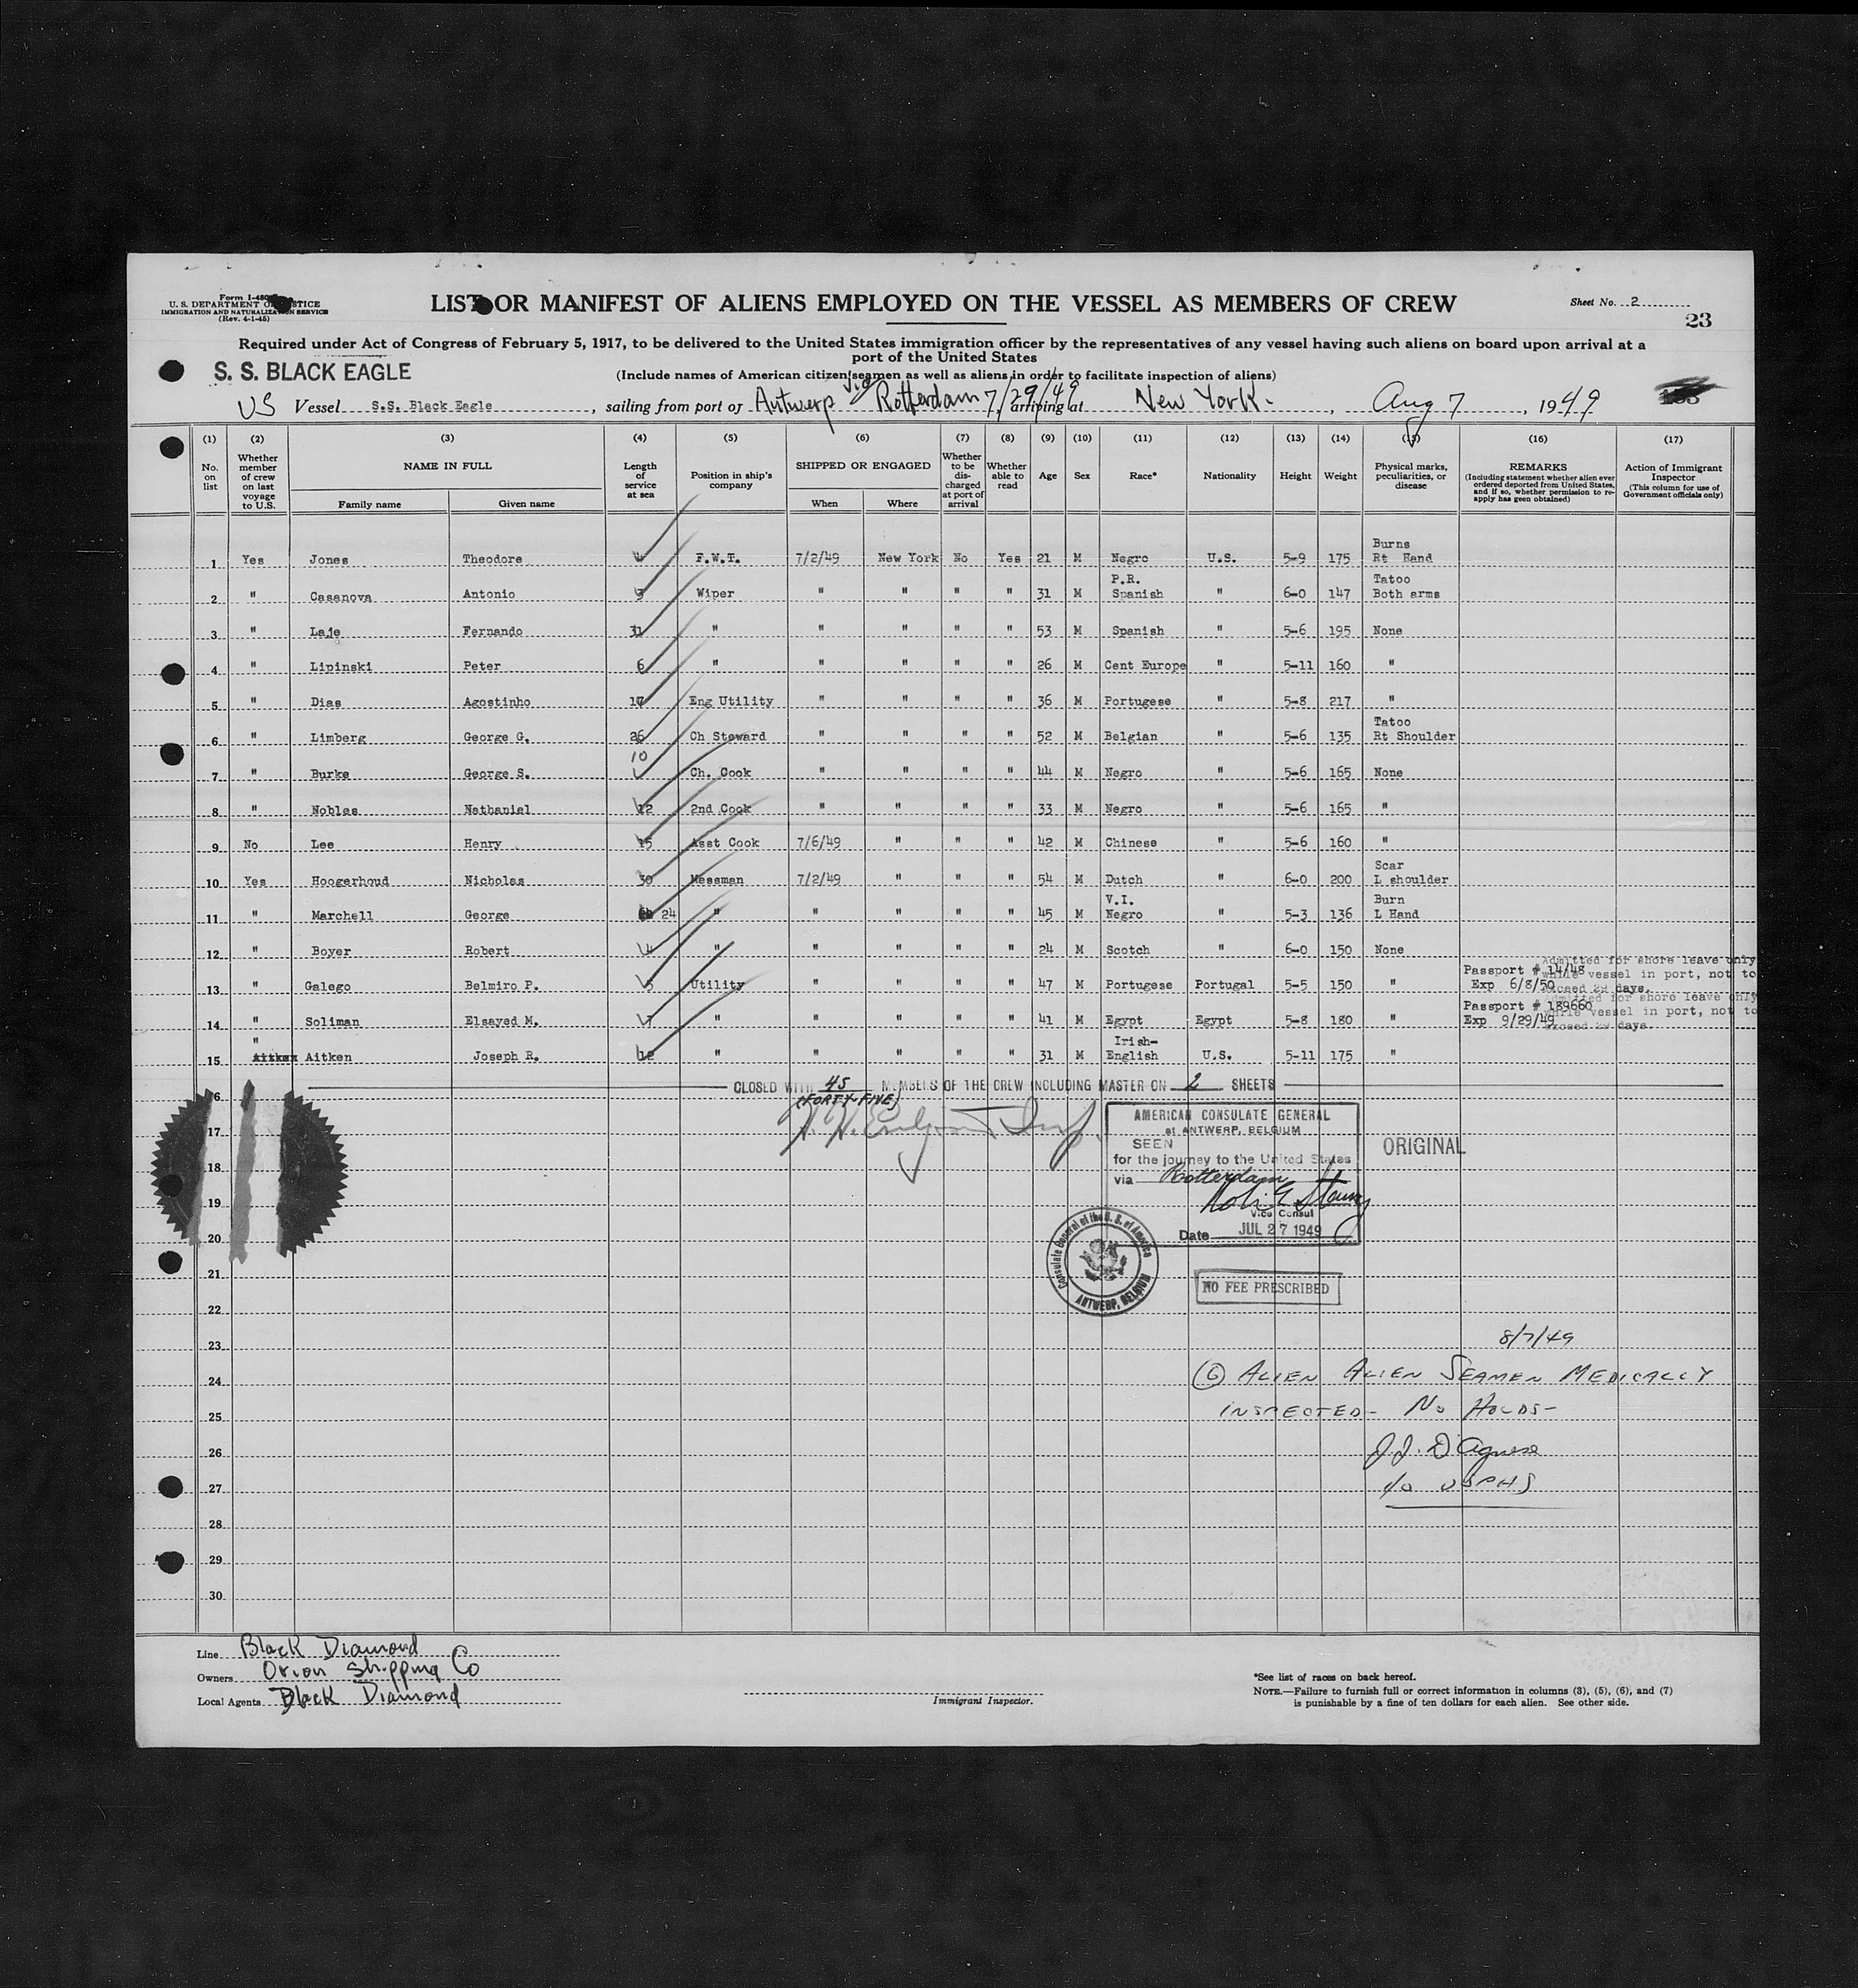 Form I-480
U. S. DEPARTMENT OF JUSTICE
IMMIGRATION AND NATURALIZATION SERVICE
(Rev. 4-1-45)
LIST OR MANIFEST OF ALIENS EMPLOYED ON THE VESSEL AS MEMBERS OF CREW
Sheet No. 2
23
Required under Act of Congress of February 5, 1917, to be delivered to the United States immigration officer by the representatives of any vessel having such aliens on board upon arrival at a
port of the United States
S. S. BLACK EAGLE
(Include names of American citizen seamen as well as aliens in order to facilitate inspection of aliens)
US Vessel S.S. Black Eagle, sailing from port of Antwerp via Rotterdam 7/29/49, arriving at New York., Aug 7, 1949
(1) (2) (3) (4) (5) (6) (7) (8) (9) (10) (11) (12) (13) (14) (15) (16) (17)
No. on list
Whether member of crew on last voyage to U.S.
NAME IN FULL
Family name Given name
Length of service at sea
Position in ship's company
SHIPPED OR ENGAGED
When Where
Whether to be discharged at port of arrival
Whether able to read
Age
Sex
Race*
Nationality
Height
Weight
Physical marks, peculiarities, or disease
REMARKS
(Including statement whether alien ever ordered deported from United States, and if so, whether permission to re-apply has geen obtained)
Action of Immigrant Inspector
(This column for use of Government officials only)
1 Yes Jones Theodore 4 F.W.T. 7/2/49 New York No Yes 21 M Negro U.S. 5-9 175 Burns Rt Hand
2 " Casanova Antonio 3 Wiper " " " " 31 M P.R. Spanish " 6-0 147 Tatoo Both arms
3 " Laje Fernando 31 " " " " " 53 M Spanish " 5-6 195 None
4 " Lipinski Peter 6 " " " " " 26 M Cent Europe " 5-11 160 "
5 " Dias Agostinho 17 Eng Utility " " " " 36 M Portugese " 5-8 217 "
6 " Limberg George G. 26 Ch Steward " " " " 52 M Belgian " 5-6 135 Tatoo Rt Shoulder
7 " Burke George S. 10 Ch. Cook " " " " 44 M Negro " 5-6 165 None
8 " Nobles Nathaniel 12 2nd Cook " " " " 33 M Negro " 5-6 165 "
9 No Lee Henry 15 Asst Cook 7/6/49 " " " 42 M Chinese " 5-6 160 "
10 Yes Hoogerhoud Nicholas 30 Messman 7/2/49 " " " 54 M Dutch " 6-0 200 Scar L shoulder
11 " Marchell George 24 " " " " " 45 M V.I. Negro " 5-3 136 Burn L Hand
12 " Boyer Robert 4 " " " " " 24 M Scotch " 6-0 150 None
13 " Galego Belmiro P. 5 Utility " " " " 47 M Portugese Portugal 5-5 150 " Passport # 14/48 Exp 6/8/50 Admitted for shore leave only while vessel in port, not to exceed 29 days.
14 " Soliman Elsayed M. 7 " " " " " 41 M Egypt Egypt 5-8 180 " Passport # 189660 Exp 9/29/49 Admitted for shore leave only while vessel in port, not to exceed 29 days.
15 " Aitken Joseph R. 12 " " " " " 31 M Irish-English U.S. 5-11 175 "
CLOSED WITH 45 MEMBERS OF THE CREW INCLUDING MASTER ON 2 SHEETS
(FORTY-FIVE)
16
17
18
19
20
21
22
23
24
25
26
27
28
29
30
AMERICAN CONSULATE GENERAL
at ANTWERP, BELGIUM
SEEN
for the journey to the United States
via Rotterdam
Vice Consul
Date JUL 27 1949
ORIGINAL
Consulate General of the U. S. of America
ANTWERP, BELGIUM
NO FEE PRESCRIBED
8/7/49
(6) ALIEN ALIEN SEAMEN MEDICALLY
INSPECTED - NO HOLDS -
J.J. D'Agnese
USPHS
Line Black Diamond
Owners Orion Shipping Co
Local Agents Black Diamond
Immigrant Inspector.
*See list of races on back hereof.
NOTE.—Failure to furnish full or correct information in columns (3), (5), (6), and (7)
is punishable by a fine of ten dollars for each alien. See other side.